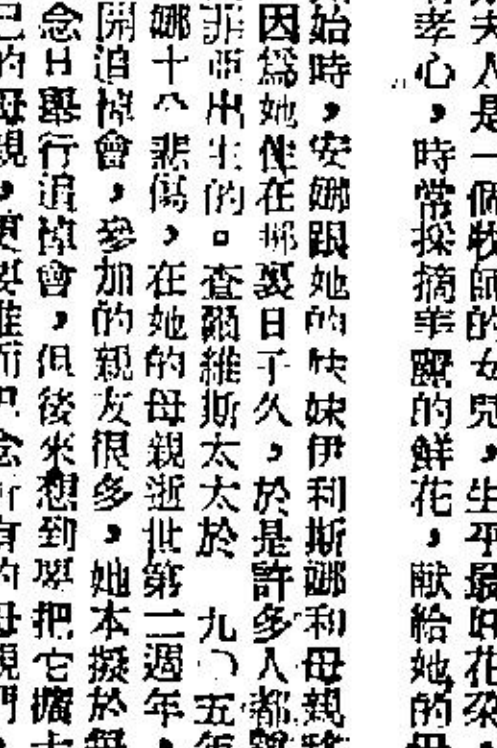 夫人是一個牧師的女兒，生平最
孝心，時常採摘美麗的鮮花，献給她的母
始時，安娜跟她的妹妹伊利斯娜和母親
因爲她住在那裏日子久，於是許多人都
菲亞出生的。查爾維斯太太於一九〇五年
娜十分悲傷，在她的母親逝世第二週年，
開追悼會，參加的親友很多，她本擬於每
念日舉行追悼會，但後來想到要把它擴大
己的母親，更要進而紀念所有的母親們